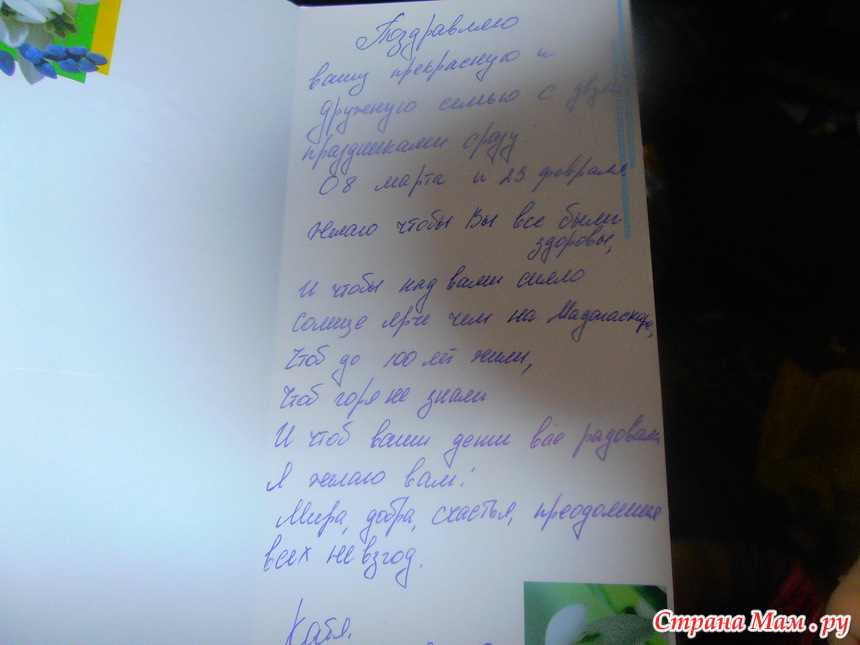 Поздравляю
вашу прекрасную и
дружную семью с двумя
праздниками сразу:
С 8 марта и 23 февраля,
Желаю чтобы Вы все были
здоровы,
И чтобы над вами сияло
Солнце ярче чем на Мадагаскаре,
Чтоб до 100 лет жили,
Чтоб горя не знали
И чтоб ваши дети вас радовали
Я желаю вам!
Мира, добра, счастья, преодоления
всех невзгод.
Катя.
Страна Мам.ру